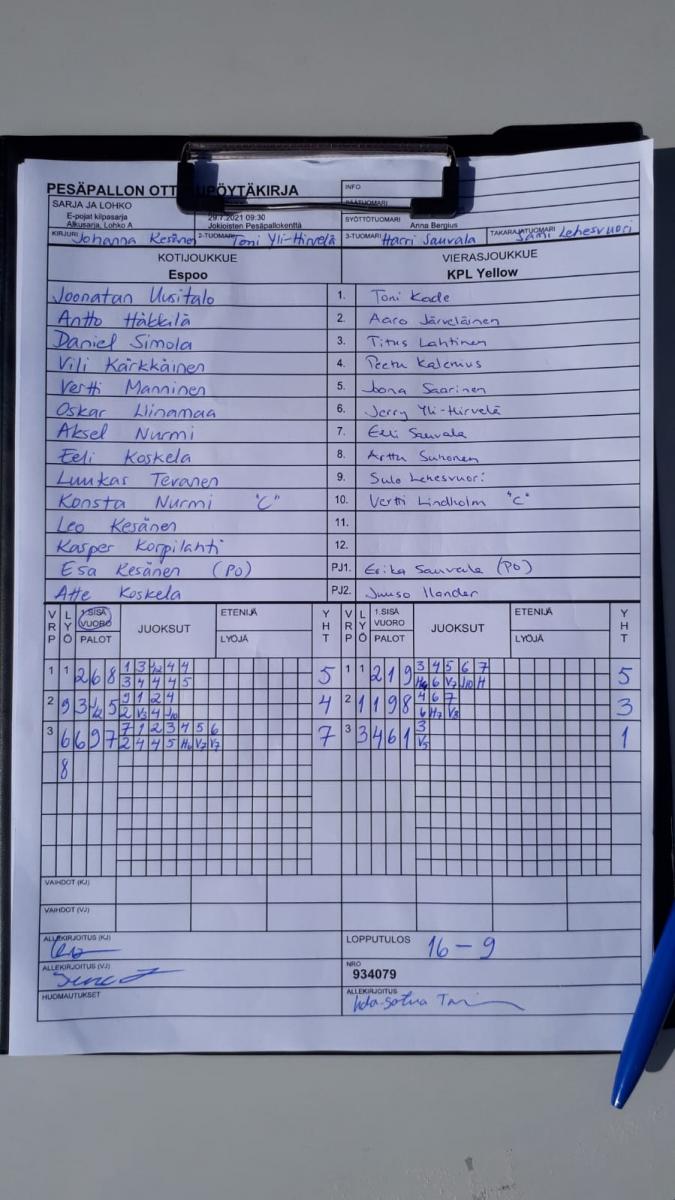 PESÄPALLON OTT UPÖYTÄKIRJA
INFO
SARJA JA LOHKO
E-pojat kilpasarja
Alkusarja, Lohko A
29.7.2021 09:30
Jokioisten Pesäpallokenttä
SYÖTTÖTUOMARI Anna Bergius
KIRJURI Johanna Kesänen 2-TUOMARI Toni Yli-Hirvelä 3-TUOMARI Harri Sauvala TAKARAJATUOMARI Sami Lehesvuori
KOTIJOUKKUE VIERASJOUKKUE
Espoo KPL Yellow
Joonatan Uusitalo 1. Toni Kade
Antto Häkkilä 2. Aaro Järveläinen
Daniel Simola 3. Titus Lahtinen
Vili Kärkkäinen 4. Peetu Kalenius
Vertti Manninen 5. Joona Saarinen
Oskar Iinamaa 6. Jerry Yli-Hirvelä
Aksel Nurmi 7. Eeli Sauvala
Eeli Koskela 8. Arttu Suhonen
Luukas Tevanen 9. Sulo Lehesvuori
Konsta Nurmi "C" 10. Vertti Lindholm "C"
Leo Kesänen 11.
Kasper Korpilahti 12.
Esa Kesänen (PO) PJ1. Erika Sauvala (PO)
Atte Koskela PJ2. Juuso Ilander
VRP LYÖ 1.SISÄ VUORO PALOT JUOKSUT ETENIJÄ LYÖJÄ YHT VRP LYÖ 1.SISÄ VUORO PALOT JUOKSUT ETENIJÄ LYÖJÄ YHT
1 1 2 6 8 1 3 4 4 5 1 1 2 1 9 3 4 5 6 7 5
3 4 4 4 5 H9 6 V7 J10 H
2 9 3 5 9 1 2 4 4 2 1 1 9 8 4 6 7 3
2 V3 4 J10 6 H7 V8
3 6 6 9 7 7 1 2 3 4 5 6 7 3 3 4 6 1 3 1
2 4 4 5 H6 V7 V7 V5
8
VAIHDOT (KJ)
VAIHDOT (VJ)
ALLEKIRJOITUS (KJ) LOPPUTULOS 16-9
ALLEKIRJOITUS (VJ) NRO
934079
HUOMAUTUKSET ALLEKIRJOITUS